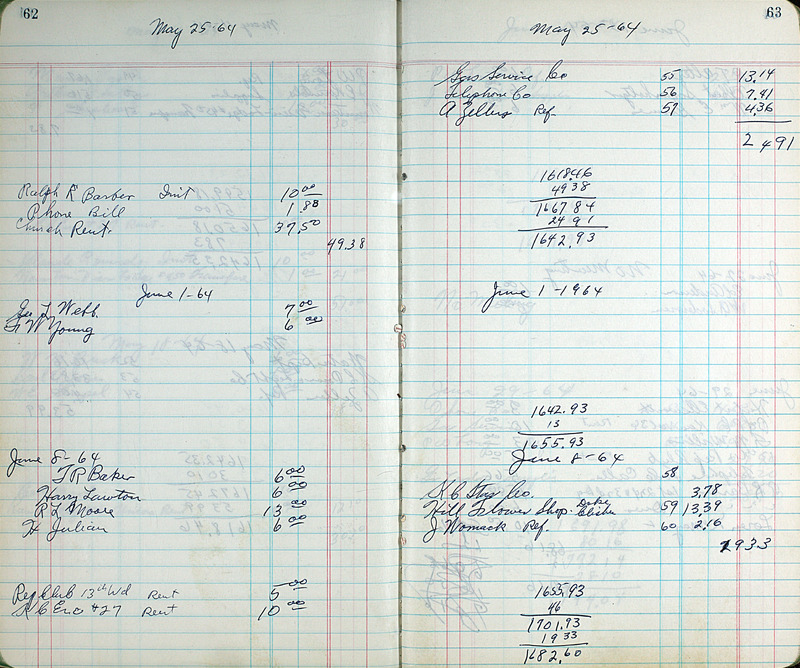 62
May 25-64
Ralph R Barber Init 10 00
Phone Bill 1.88
Church Rent. 37.50
49.38
June 1-64
Geo L Webb. 7 00
F W Young 6 00
June 8-64
T R Baker 6 00
Harry Lawton 6 00
R L Moore 13 00
H Julian 6 00
Rep Club 13th Wd Rent 5 00
K C Enc #27 Rent 10 00
63
May 25-64
Gas Service Co 55 13.14
Telephone Co 56 7.41
A Zellers Ref. 57 4.36
24 91
1618.46
49 38
1667 84
24 91
1642.93
June 1-1964
1642.93
13
1655.93
June 8-64
58
K C Star Co. 3.78
Hill Flower Shop. Duke Elisha 59 13.39
J Womack Ref. 60 2.16
1933
1655.93
46
1701.93
19 33
1682.60